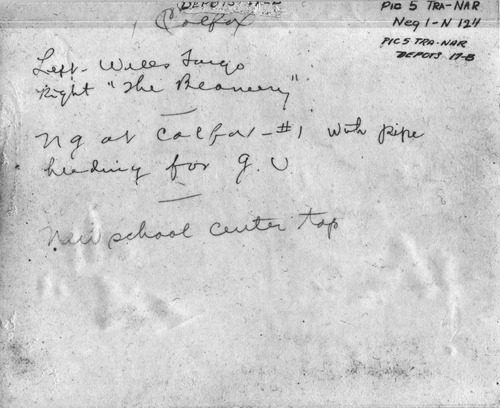 DEPOTS 17-B
Colfax
PIC 5 TRA-NAR
Neg 1-N 124
PIC 5 TRA-NAR
DEPOTS 17-B
Left - Wells Fargo
Right "The Beanery"
N g at Colfax - #1 with pipe
heading for G. V.
New school center top